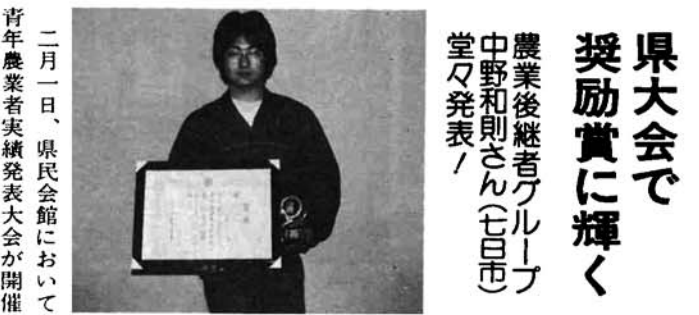 県大会で
奨励賞に輝く
農業後継者グループ
中野和則さん（七日市）
堂々発表！
二月一日、県民会館において
青年農業者実績発表大会が開催